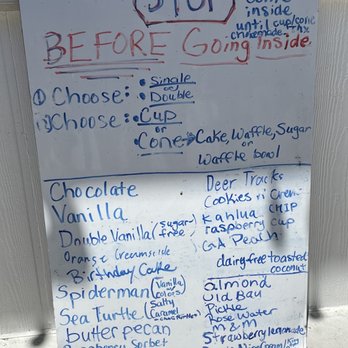 STOP
come
inside
until cup/cone
choice made. thx
BEFORE Going Inside
① Choose: • Single
or
• Double
② Choose: • Cup
or
• Cone → Cake, Waffle, Sugar
or
Waffle bowl
Chocolate
Vanilla
Double Vanilla (sugar free)
Orange Creamsicle
Birthday Cake
Spiderman (Vanilla colors)
Sea Turtle (Salty Caramel
butter pecan
Raspberry Sorbet
Deer Tracks
Cookies n' Crem
Kahlua CHIP
raspberry cup
GA Peach
dairy-free toasted
coconut
almond
Old Bay
Pickle
Rose Water
M & M
Strawberry lemonade